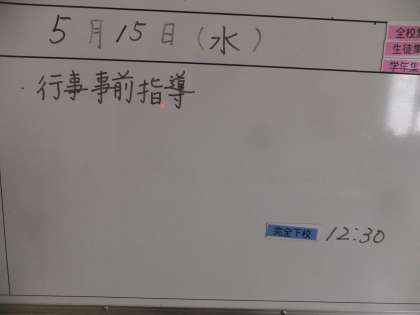 5月15日(水)
全校集
生徒集
学年集
・行事事前指導
完全下校 12:30